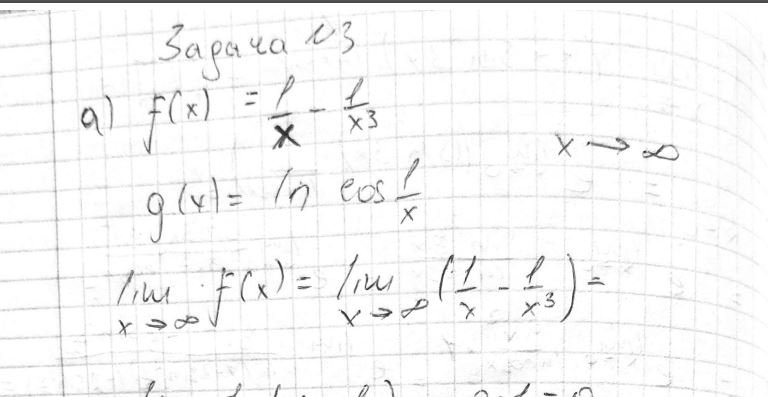 Задача №3
а) f(x) = 1/x - 1/x³
x → ∞
g(x) = ln cos 1/x
lim x→∞ f(x) = lim x→∞ (1/x - 1/x³) =